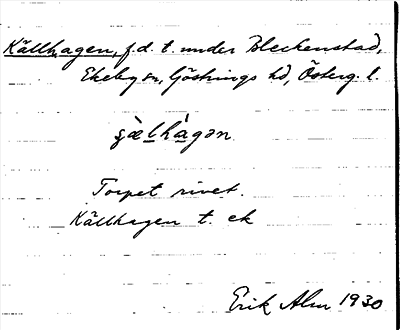 Källhagen, f.d. t. under Bleckenstad,
Ekeby sn, Göstrings hd, Österg. l.
s̨æ̀lhàgən
Torpet rivet.
Källhagen t. ek
Erik Alm 1930